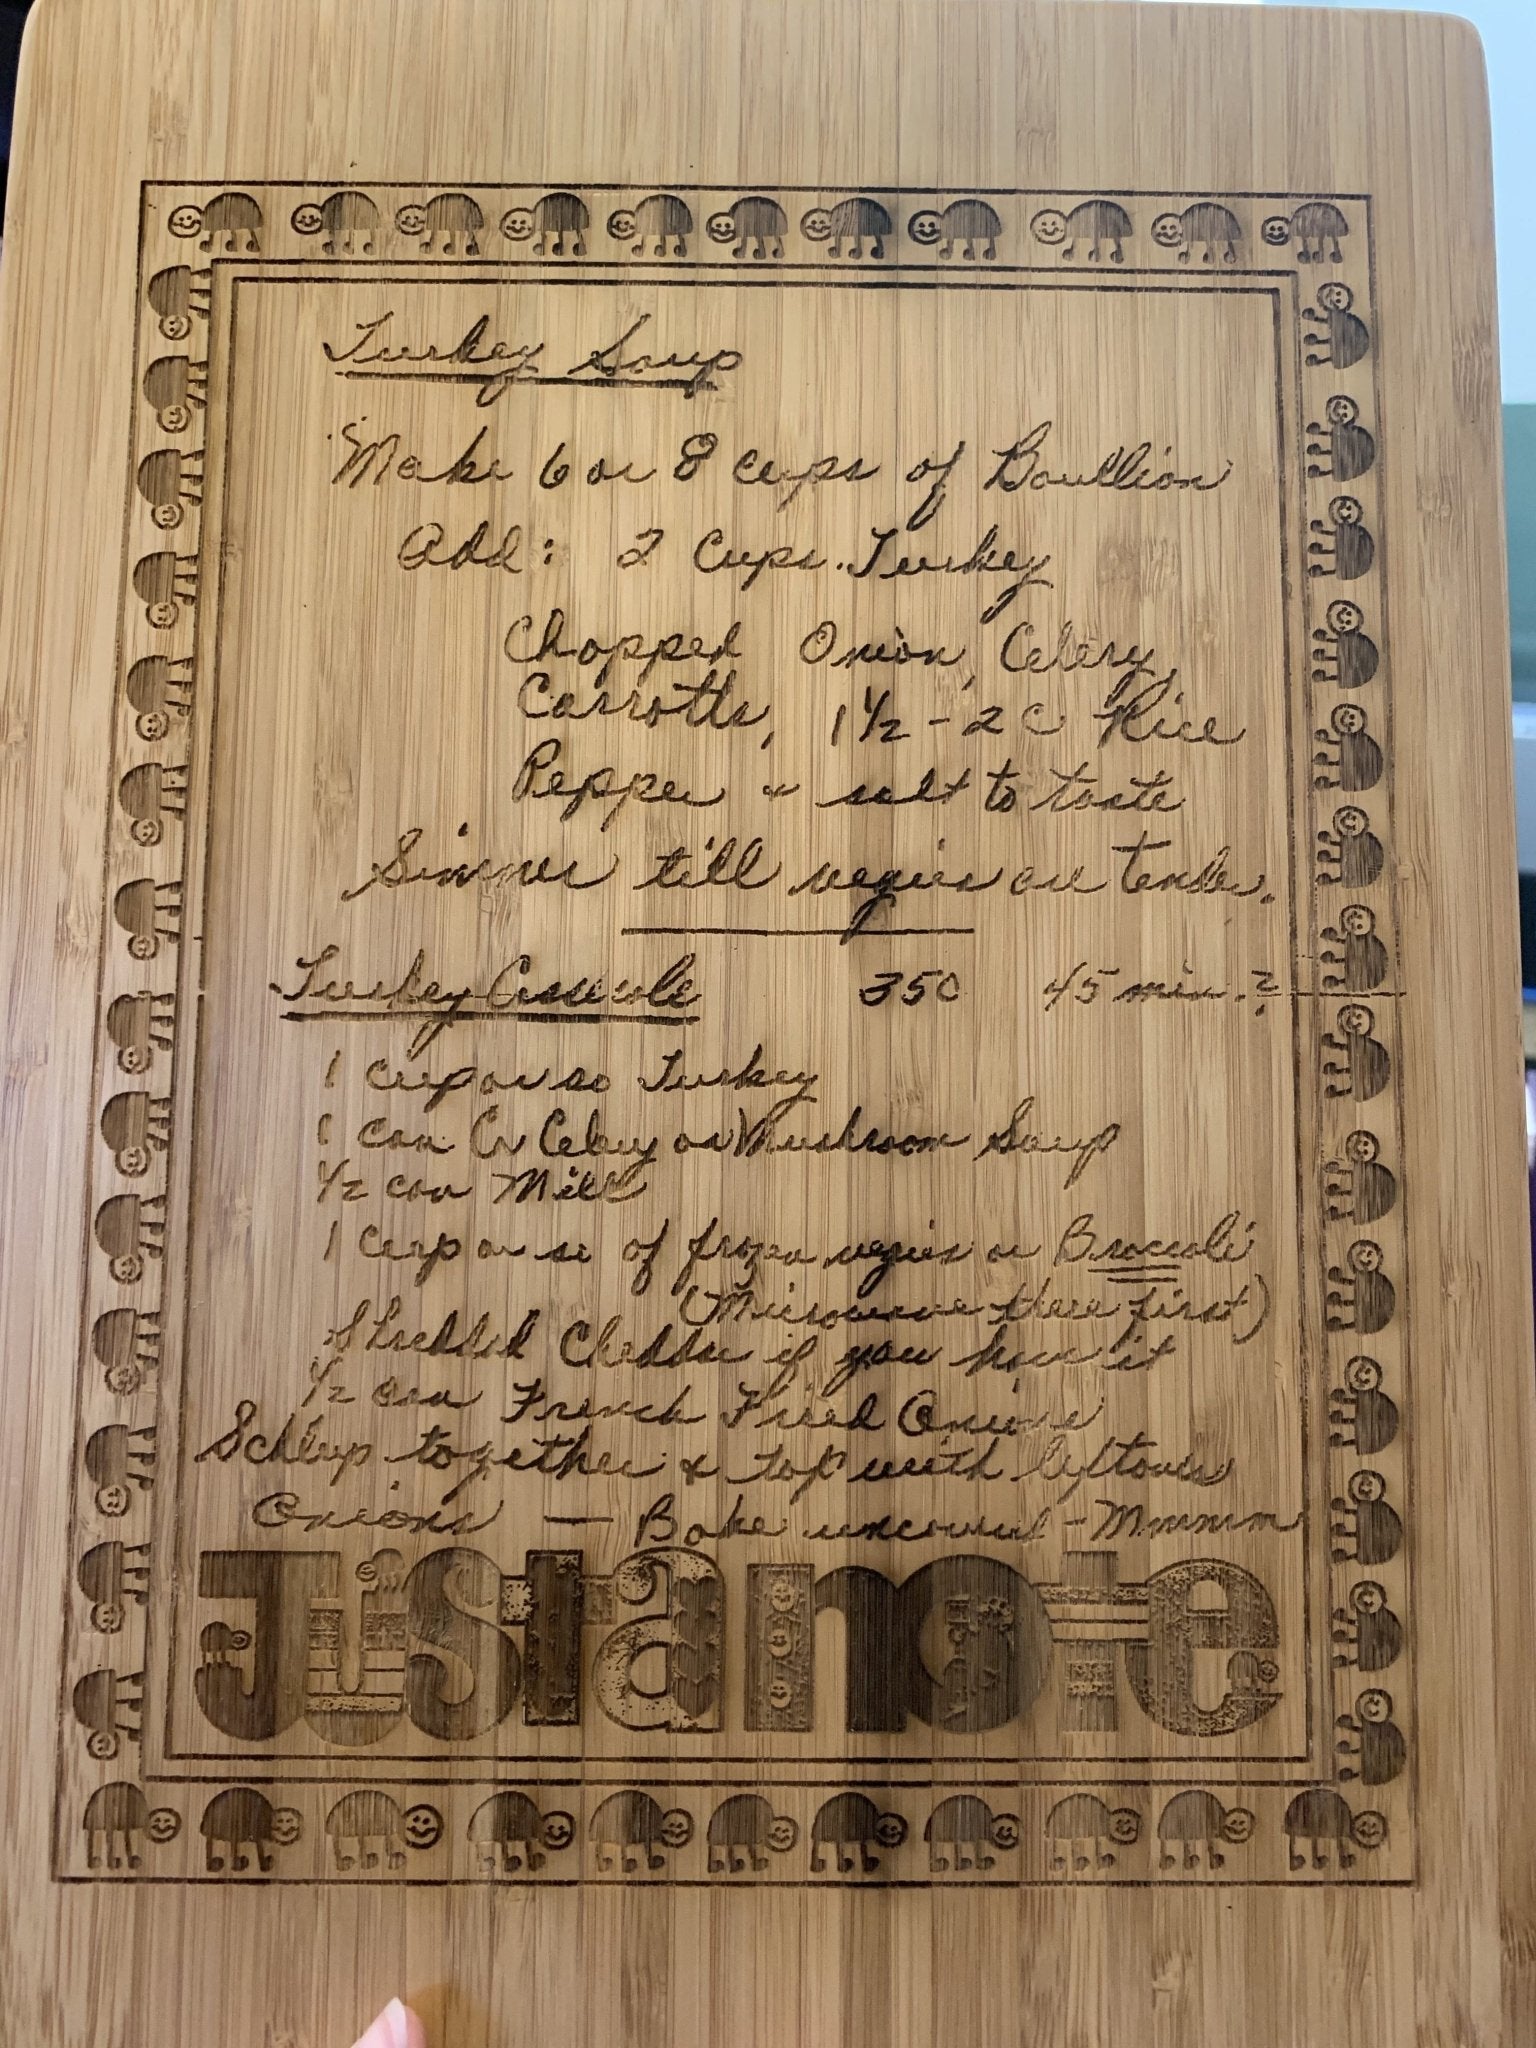 Turkey Soup
Make 6 or 8 cups of Boullion
Add: 2 Cups Turkey
Chopped Onion, Celery,
Carrotts, 1 1/2 - 2 C Rice
Pepper & salt to taste
Simmer till vegies are tender.
Turkey Casserole 350 45 min.?
1 cup or so Turkey
1 can Cr Celery or Mushroom Soup
1/2 can Milk
1 cup or so of frozen vegies or Broccoli
(Microwave these first)
Shredded Cheddar if you have it
1/2 can French Fried Onions
Schlup together & top with leftover
Onions — Bake uncovered - Mmmmm
Just a note